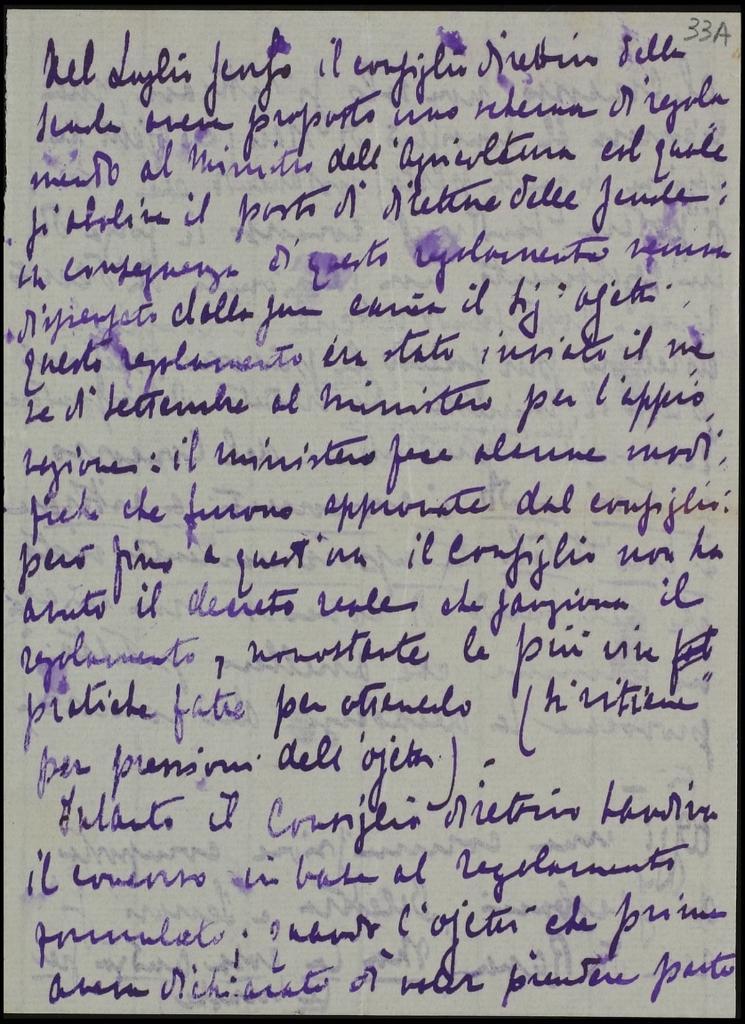 33A
Nel Luglio scorso il consiglio direttivo della
Scuola aveva proposto uno schema di regola
mento al Ministro dell'Agricoltura col quale
si aboliva il posto di direttore delle scuole:
in conseguenza di questo regolamento veniva
dispensato dalla sua carica il Sig. Ojetti.
Questo regolamento era stato inviato il me
se di Settembre al Ministero per l'appro
vazione: il ministero fece alcune modi
fiche che furono approvate dal consiglio:
però fino a quest'ora il Consiglio non ha
avuto il decreto reale che sanziona il
regolamento, nonostante le più vive
pratiche fatte per ottenerlo (si ritiene
per pressioni dell'Ojetti).
Intanto il Consiglio direttivo bandiva
il concorso in base al regolamento
formulato; quando l'Ojetti che prima
aveva dichiarato di voler prendere parte